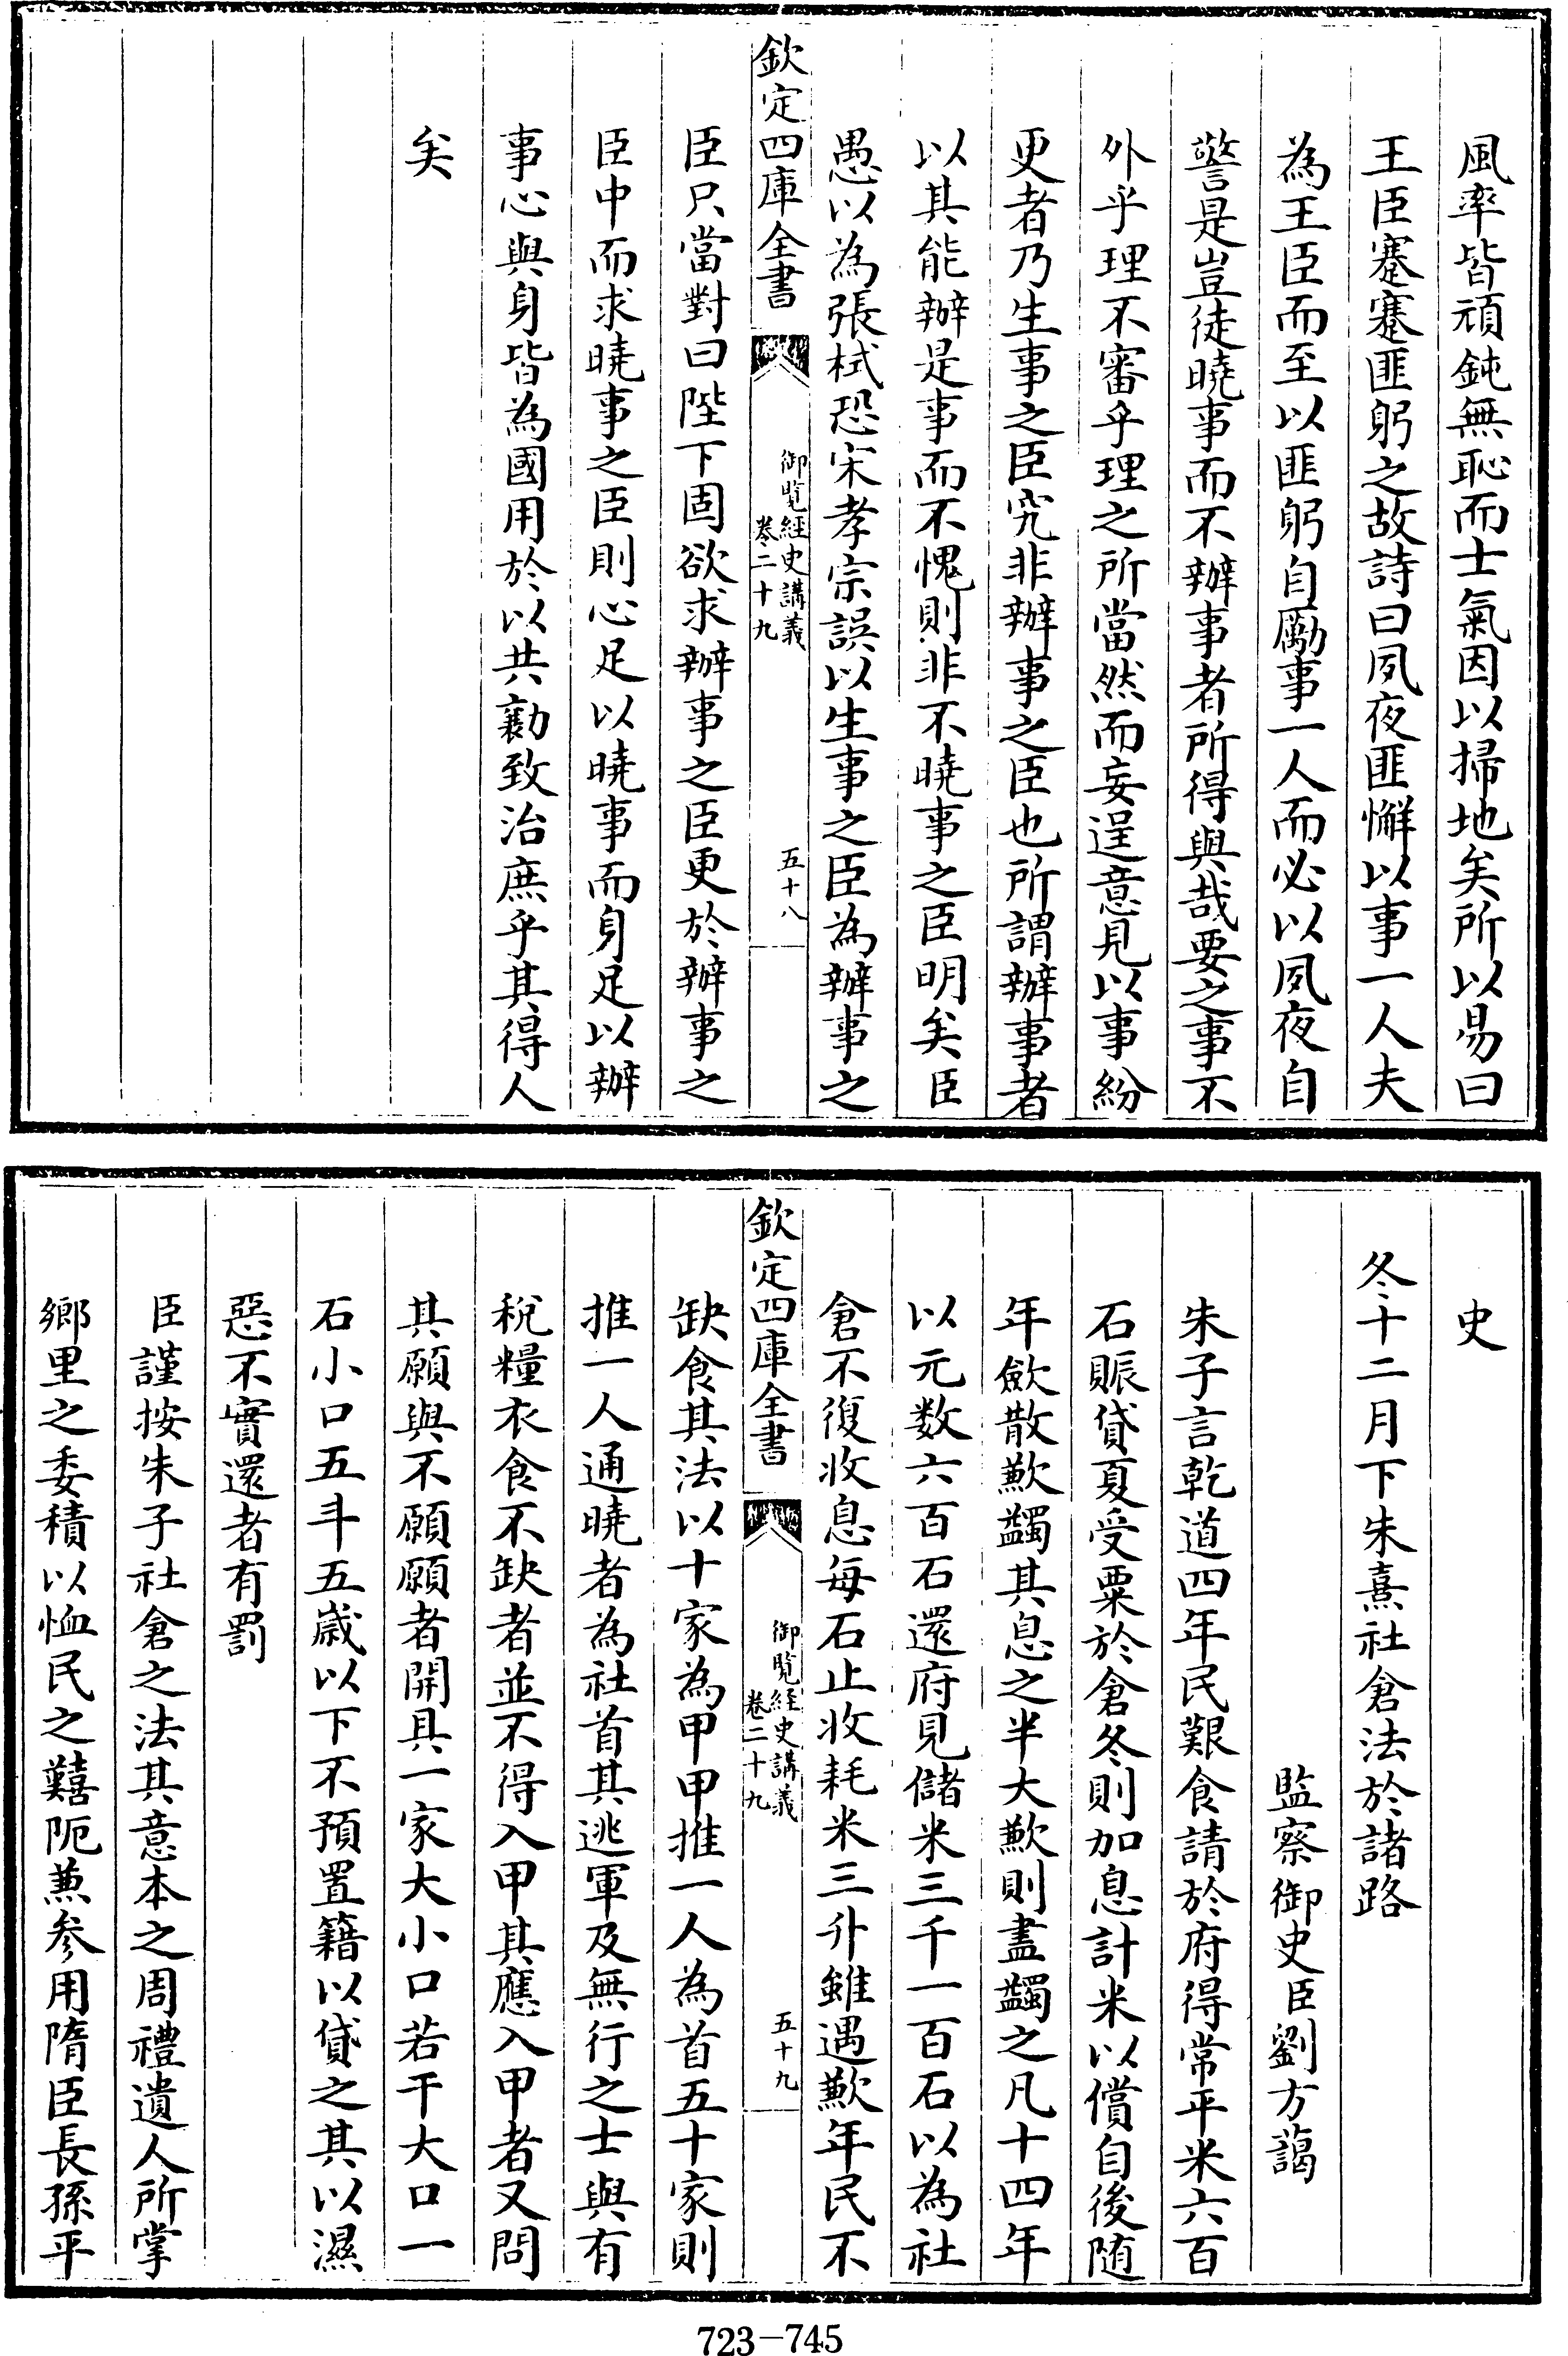 風率皆頑鈍無恥而士氣因以掃地矣所以易曰
王臣蹇蹇匪躬之故詩曰夙夜匪懈以事一人夫
為王臣而至以匪躬自勵事一人而必以夙夜自
警是豈徒曉事而不辦事者所得與哉要之事不
外乎理不審乎理之所當然而妄逞意見以事紛
更者乃生事之臣究非辦事之臣也所謂辦事者
以其能辦是事而不愧則非不曉事之臣明矣臣
愚以為張栻恐宋孝宗誤以生事之臣為辦事之
欽定四庫全書
御覽經史講義
卷二十九
五十八
臣只當對曰陛下固欲求辦事之臣更於辦事之
臣中而求曉事之臣則心足以曉事而身足以辦
事心與身皆為國用於以共勷致治庶乎其得人
矣
史
冬十二月下朱熹社倉法於諸路
監察御史臣劉方藹
朱子言乾道四年民艱食請於府得常平米六百
石賑貸夏受粟於倉冬則加息計米以償自後随
年斂散歉蠲其息之半大歉則盡蠲之凡十四年
以元数六百石還府見儲米三千一百石以為社
倉不復收息每石止收耗米三升雖遇歉年民不
欽定四庫全書
御覽經史講義
卷二十九
五十九
缺食其法以十家為甲甲推一人為首五十家則
推一人通曉者為社首其逃軍及無行之士與有
稅糧衣食不缺者並不得入甲其應入甲者又問
其願與不願願者開具一家大小口若干大口一
石小口五斗五歲以下不預置籍以貸之其以濕
惡不實還者有罰
臣謹按朱子社倉之法其意本之周禮遺人所掌
鄉里之委積以恤民之囏阨兼参用隋臣長孫平
723-745